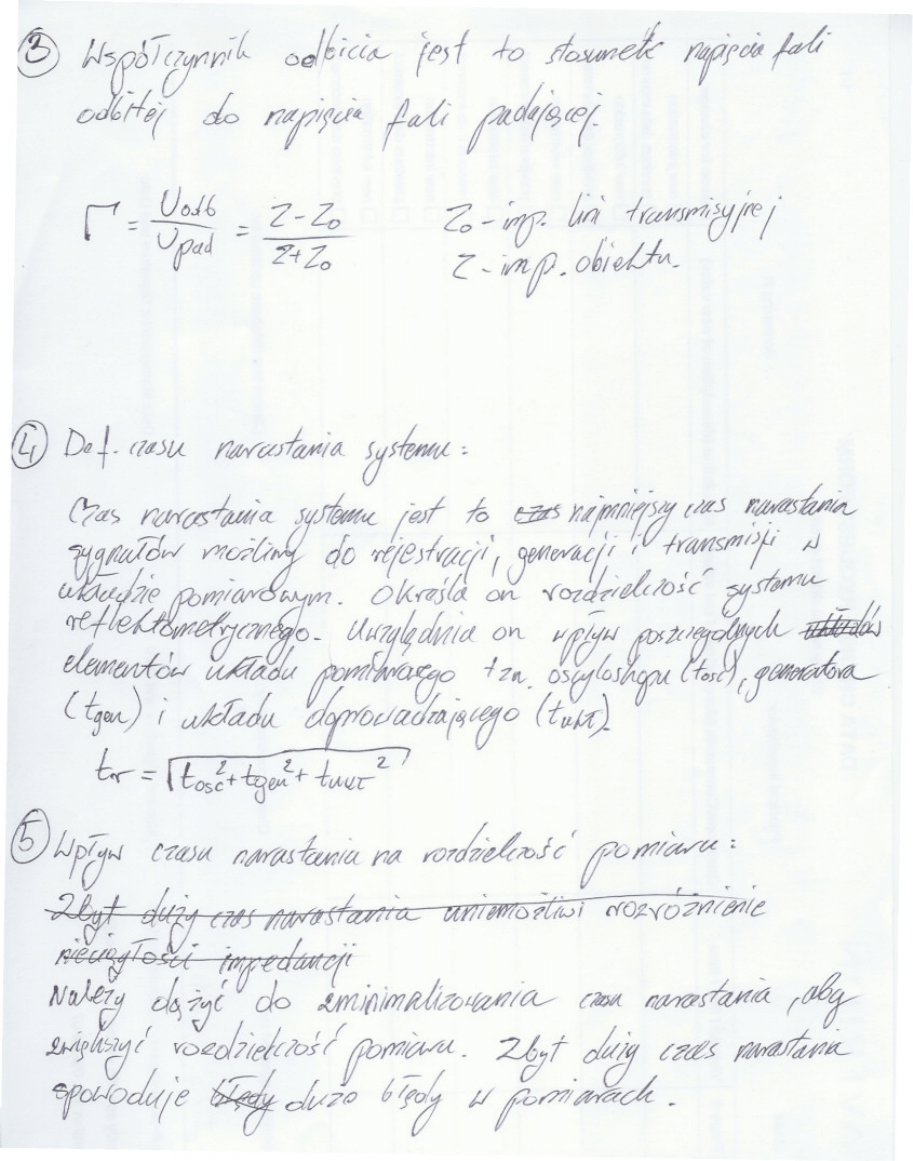 ③ Współczynnik odbicia jest to stosunek napięcia fali
odbitej do napięcia fali padającej.
Γ = Uodb/Upad = Z-Z₀/Z+Z₀ Z₀ - imp. lini transmisyjnej
Z - imp. obiektu.
④ Def. czasu narastania systemu:
Czas narastania systemu jest to czas najmniejszy czas narastania
sygnałów możliwy do rejestracji, generacji i transmisji w
układzie pomiarowym. Określa on rozdzielczość systemu
reflektometrycznego. Uwzględnia on wpływ poszczególnych układów
elementów układu pomiarowego tzn. oscyloskopu (tosc), generatora
(tgen) i układu doprowadzającego (tukł).
tnr = √(tosc² + tgen² + tukł²)
⑤ Wpływ czasu narastania na rozdzielczość pomiaru:
Zbyt duży czas narastania uniemożliwi rozróżnienie
nieciągłości impedancji
Należy dążyć do zminimalizowania czasu narastania, aby
zwiększyć rozdzielczość pomiaru. Zbyt duży czas narastania
spowoduje błędy duże błędy w pomiarach.